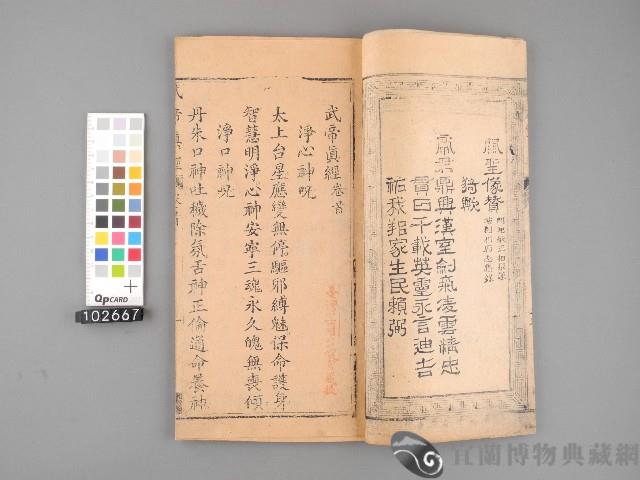 關聖像贊
猗歟
關君鼎興漢室劍氣凌雲精忠
貫日千載英靈永言迪吉
祐我邦家生民賴弼
武帝眞經卷首
淨心神咒
太上台星應變無停驅邪縛魅保命護身
智慧明淨心神安寧三魂永久魄無喪傾
淨口神咒
丹朱口神吐穢除氛舌神正倫通命養神
QPCARD
102667
宜蘭博物典藏網